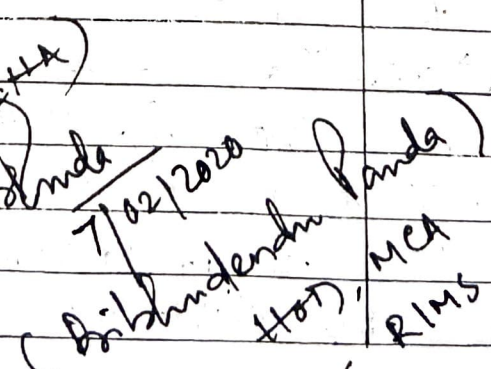 HA)
Panda
7/02/2020
(Bibhudendu Panda)
HOD, MCA
RIMS